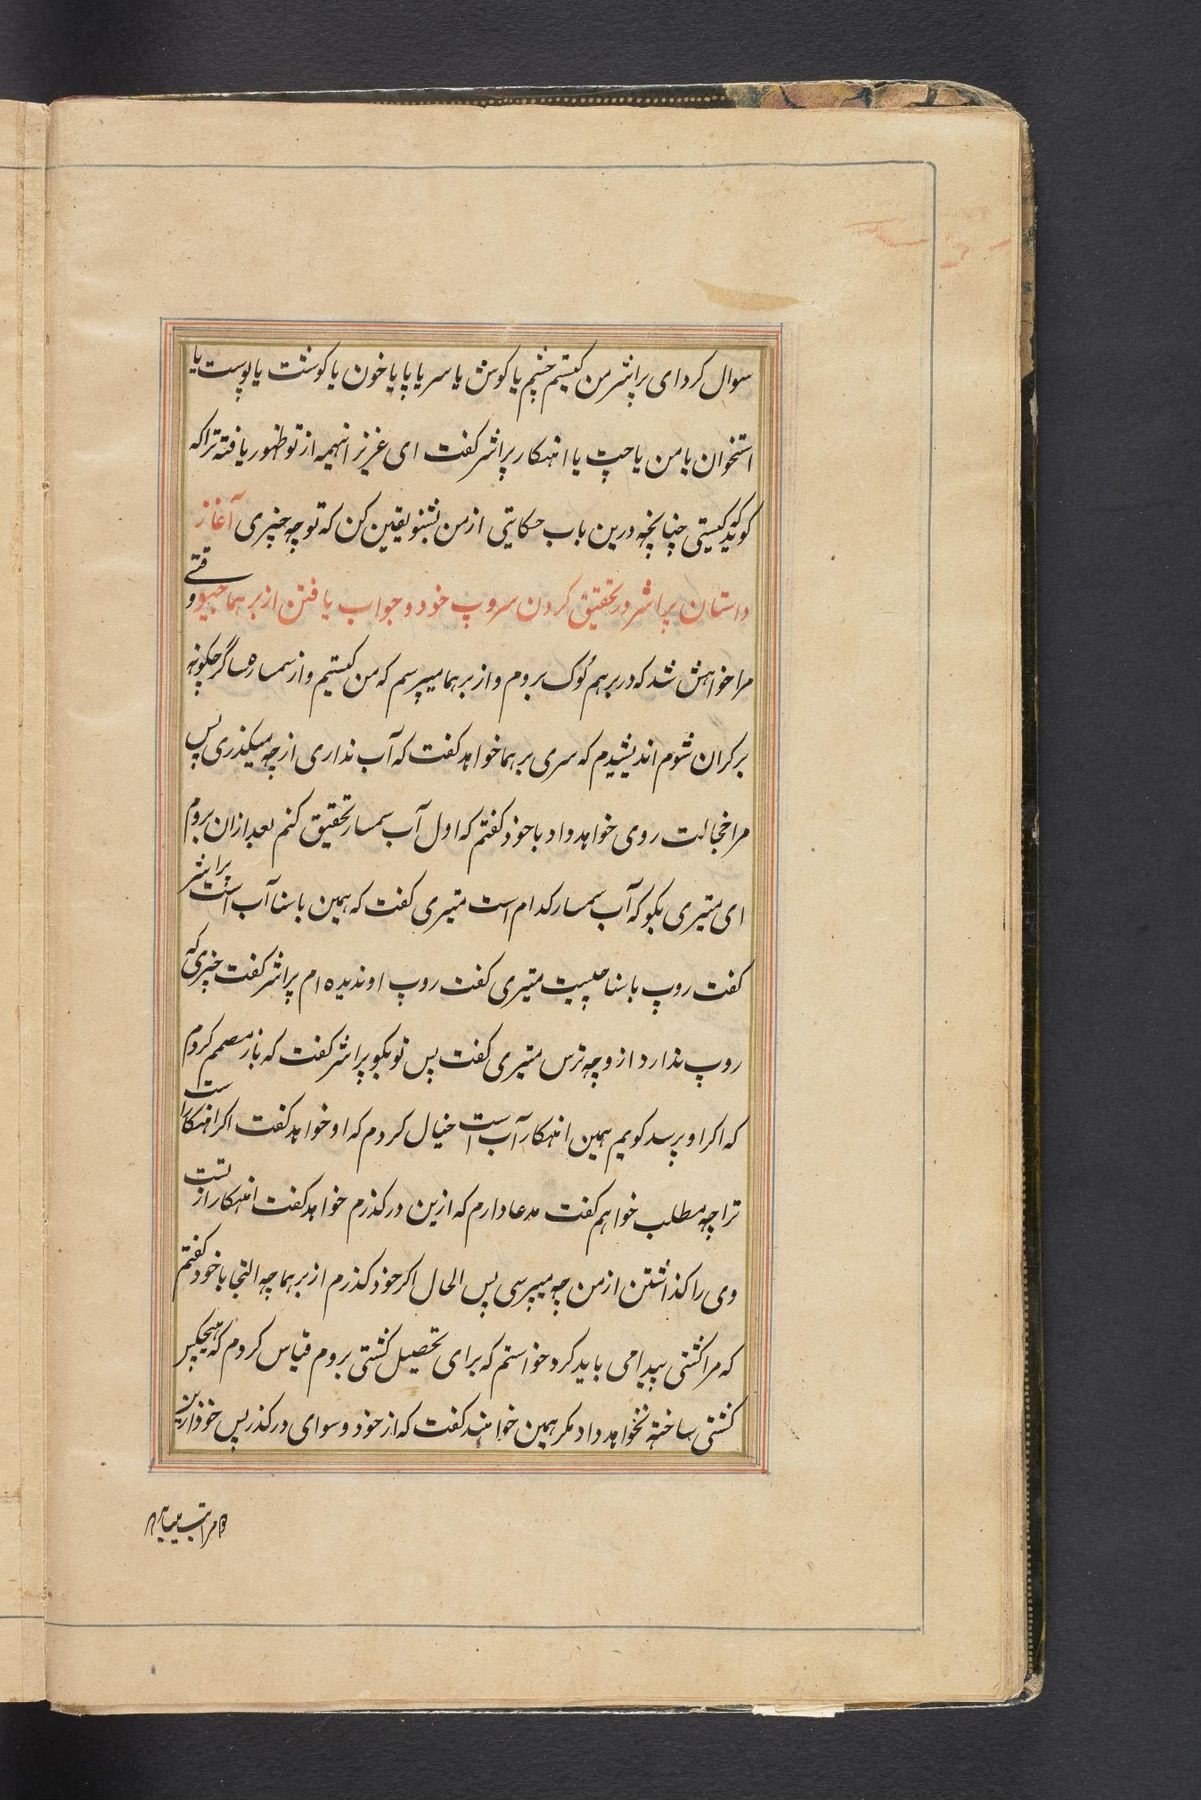 سوال کرد ای پراشر من کیستم چشم یا کوش یا سر یا پا یا خون یا کوشت یا پوست یا
استخوان یا من یا چت یا اهنکار پراشر کفت ای عزیز اینهمه از تو ظهور یافته ترا که
کوید که کیستی چنانچه درین باب حکایتی از من بشنو یقین کن که تو چه چیزی آغاز
داستان پراشر در تحقیق کردن سروپ خود و جواب یافتن از برهما جیو وقتی
مرا خواهش شد که در برهم لوک بروم و از برهما میپرسم که من کیستم و از سمسار ساگر چکونه
بر کران شوم اندیشیدم که سری برهما خواهد کفت که آب نداری از چه میکذری پس
مرا خجالت روی خواهد داد با خود کفتم که اول آب سمسار تحقیق کنم بعد ازان بروم
ای متیری بکو که آب سمسار کدام است متیری کفت که همین باسنا آب است پراشر
کفت روپ باسنا چیست متیری کفت روپ او ندیده ام پراشر کفت چیزی که
روپ ندارد ازو چه ترس متیری کفت پس تو بکو پراشر کفت که باز مصمم کردم
که اکر او پرسد کویم همین اهنکار آب است خیال کردم که او خواهد کفت اکر اهنکار است
ترا چه مطلب خواهم کفت مدعا دارم که ازین در کذرم خواهد کفت اهنکار از تست
وی را کذاشتن از من چه میپرسی پس الحال اکر خود کذرم از برهما چه التجا با خود کفتم
که مرا کشتی پیدا می باید کرد خواستم که برای تحصیل کشتی بروم قیاس کردم که هیچکس
کشتی ساخته نخواهد داد مکر همین خواهند کفت که از خود و سوای در کذر پس خود ازین